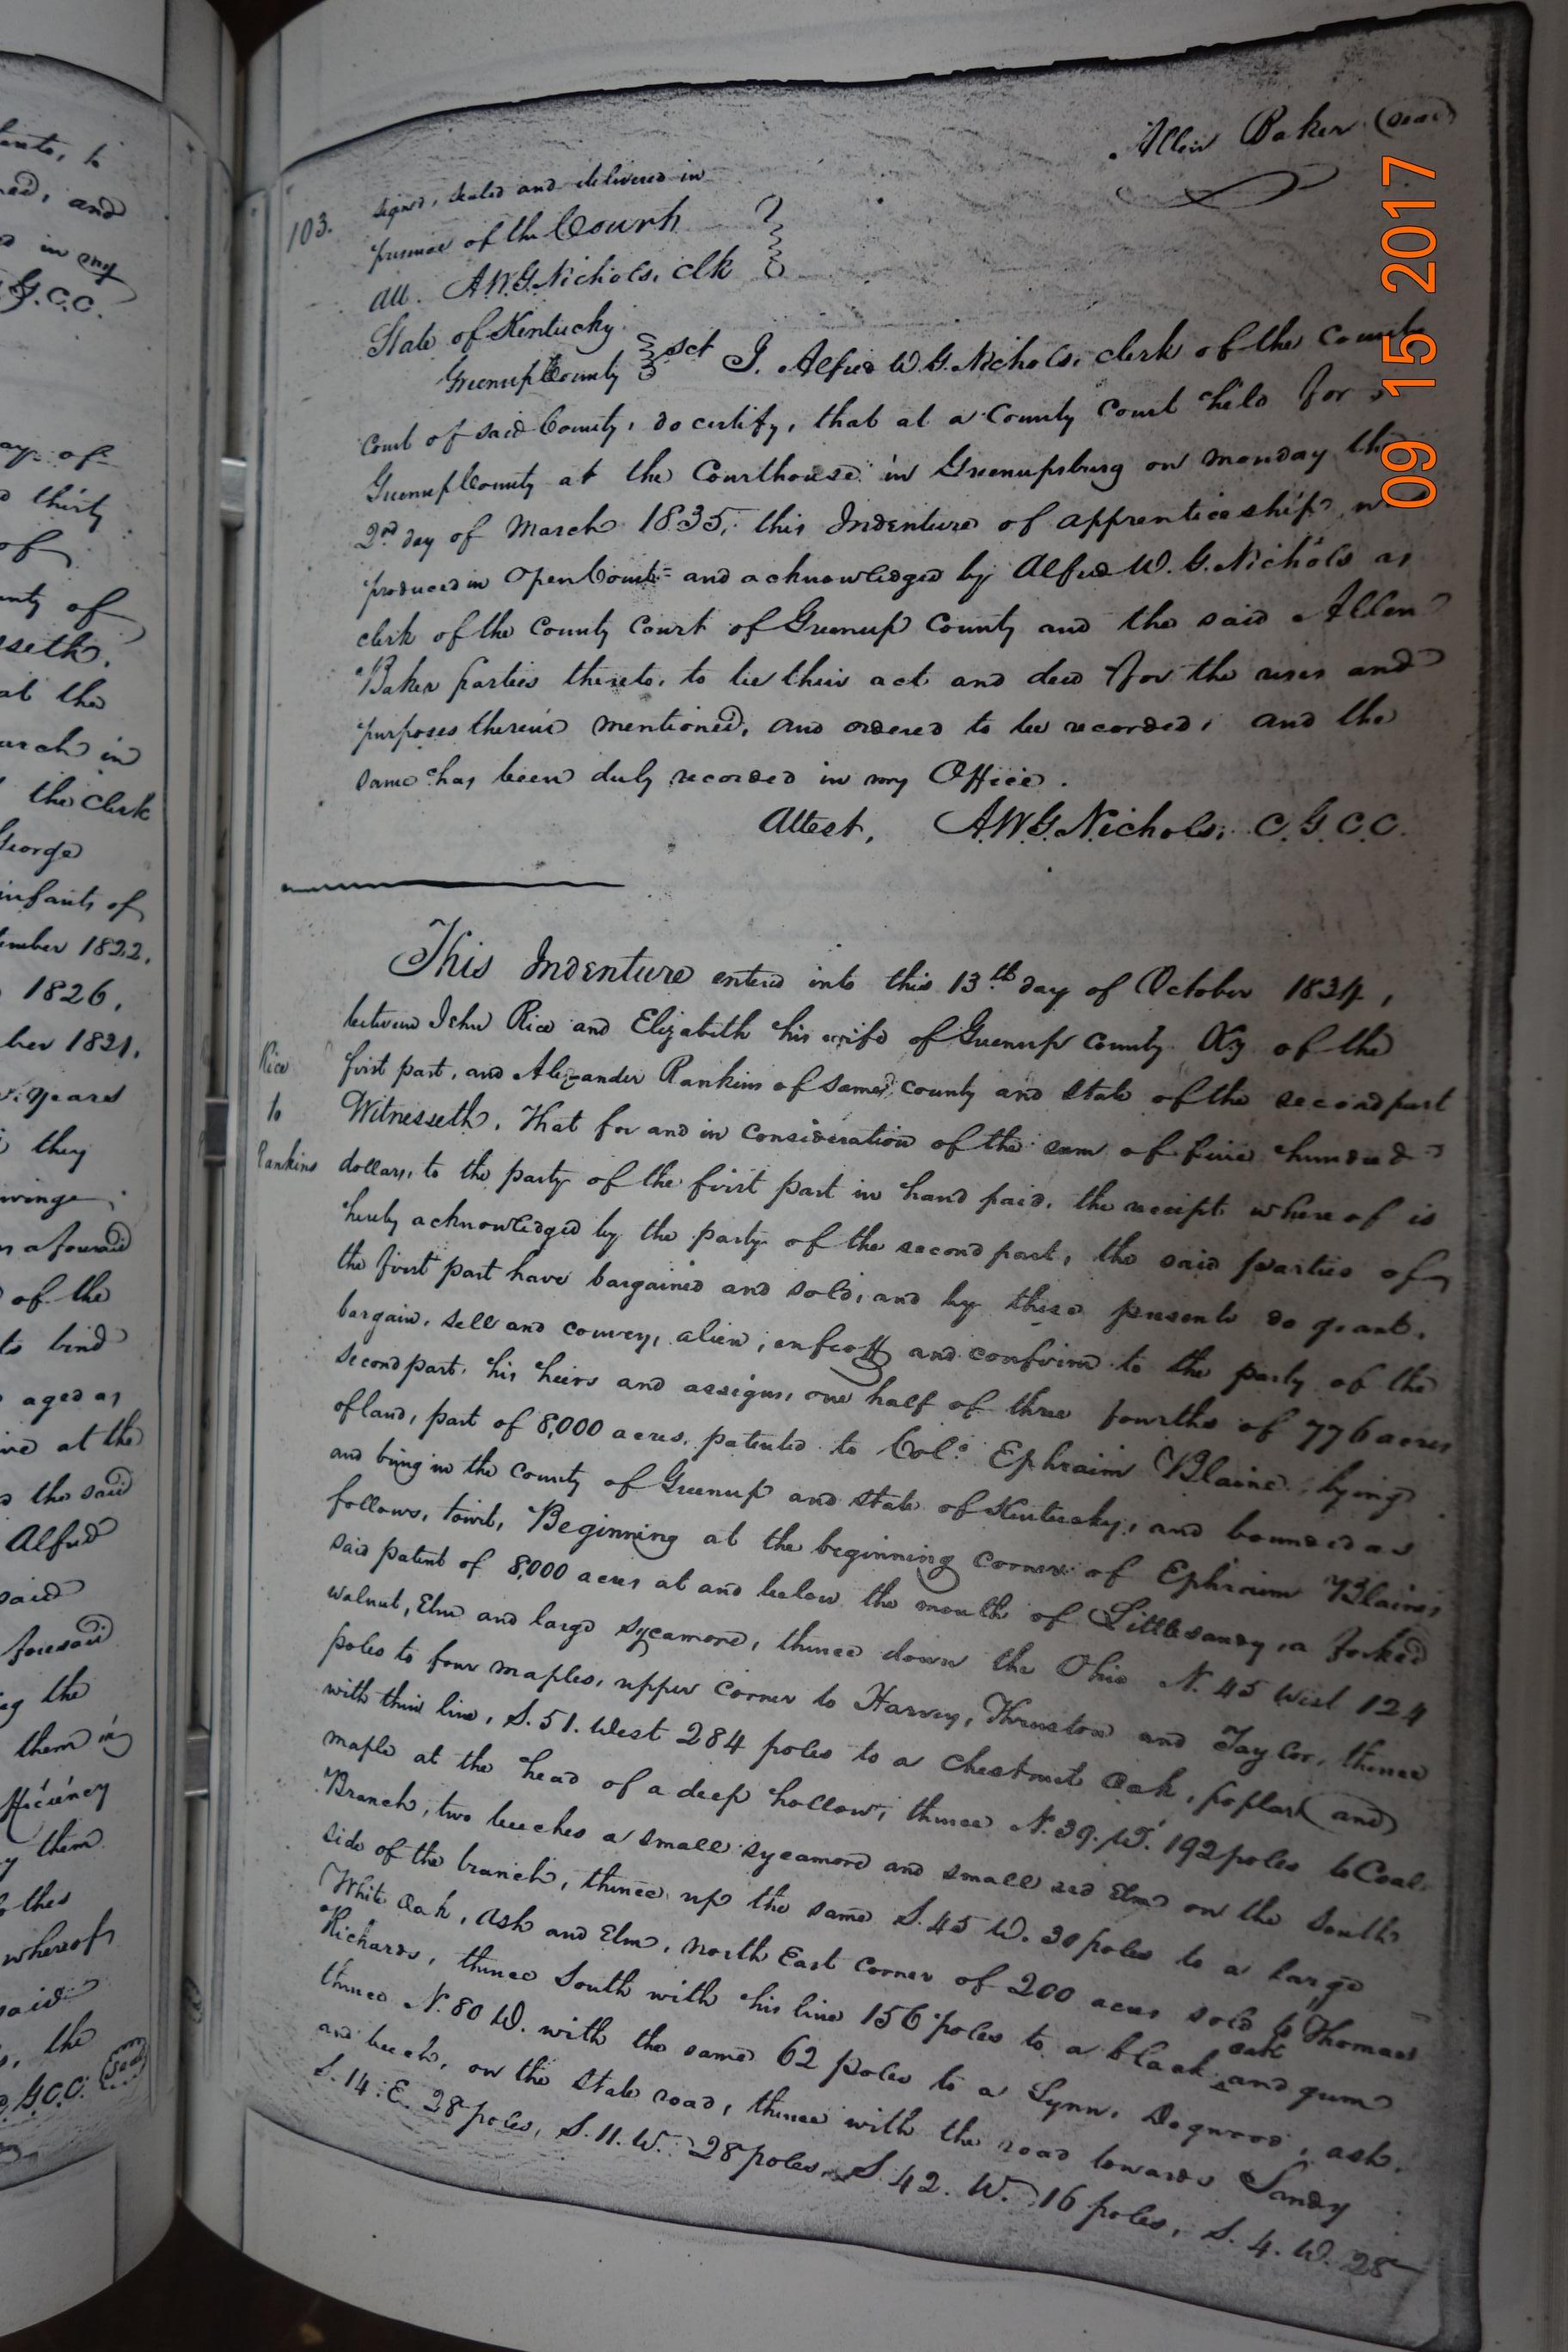 ants, to
ed, and
in my
G.C.C.
ay of
thirty
of
nty of
sseth.
at the
arch in
the Clerk
George
infants of
tember 1822,
1826,
ber 1821.
years
they
wings
aforesaid
of the
to bind
aged as
ive at the
the said
Alfred
said
foresaid
ng the
them in
fficiency
them
thes
whereof
said
the
G.C.C. (Seal)
Allen Baker (Seal)
103.
signed, sealed and delivered in
presence of the Court
Att. A.W.G. Nichols, clk
State of Kentucky
Greenup County sct I. Alfred W. G. Nichols, clerk of the County
Court of said County, do certify, that at a County Court held for
Greenup County at the Courthouse in Greenupsburg on monday the
2nd day of March 1835, this Indenture of apprenticeship was
produced in Open Court= and acknowledged by Alfred W. G. Nichols as
clerk of the County Court of Greenup County and the said Allen
Baker parties thereto, to be their act and deed for the uses and
purposes therein mentioned, and ordered to be recorded, and the
same has been duly recorded in my Office.
Attest, A.W.G. Nichols, C.G.C.C.
This Indenture entered into this 13th day of October 1834,
between John Rice and Elizabeth his wife of Greenup County Ky of the
Rice
first part, and Alexander Rankins of same county and state of the second part
to
Witnesseth. That for and in consideration of the sum of five hundred
Rankins
dollars, to the party of the first part in hand paid, the receipt whereof is
hereby acknowledged by the party of the second part, the said parties of
the first part have bargained and sold, and by these presents do grant,
bargain, sell and convey, alien, enfeoff and confirm to the party of the
second part, his heirs and assigns, one half of three fourths of 776 acres
of land, part of 8,000 acres, patented to Col. Ephraim Blaine, lying
and being in the county of Greenup and state of Kentucky, and bounded as
follows, towit, Beginning at the beginning corner of Ephraim Blaines
said patent of 8,000 acres at and below the mouth of Little sandy, a forked
walnut, Elm and large sycamore, thence down the Ohio N. 45 West 124
poles to four maples, upper corner to Harvey, Thruston and Taylor, thence
with their line, S. 51. West 284 poles to a chestnut Oak, poplar and
maple at the head of a deep hollow, thence N. 39. W. 192 poles to Coal
Branch, two beeches a small sycamore and small red Elm on the South
side of the branch, thence up the same S. 45 W. 30 poles to a large
White Oak, Ash and Elm, north East Corner of 200 acres sold to Thomas
Richards, thence South with his line 156 poles to a black oak and gum
thence N. 80 W. with the same 62 poles to a Lynn, Dogwood, ash,
and beech, on the State road, thence with the road towards Sandy
S. 14. E. 28 poles, S. 11. W. 28 poles, S. 42. W. 16 poles, S. 4. W. 28
09 15 2017